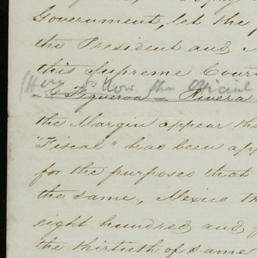 Government, let the
the President and
this Supreme Court
(Here follow the
Figueroa — Rivera
the Margin appear the
"Fiscal" has been app
for the purposes that
the same, Mexico th
eight hundred and
the thirtieth of same